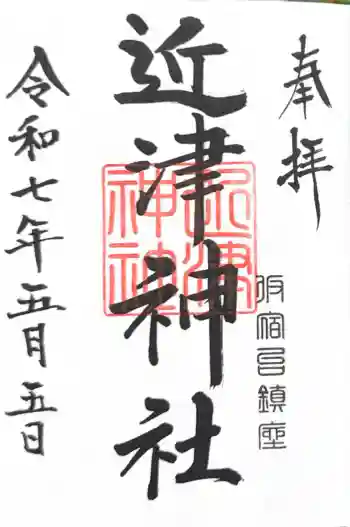 奉拝
坂宿邑鎮座
近津神社
近津神社
令和七年五月五日